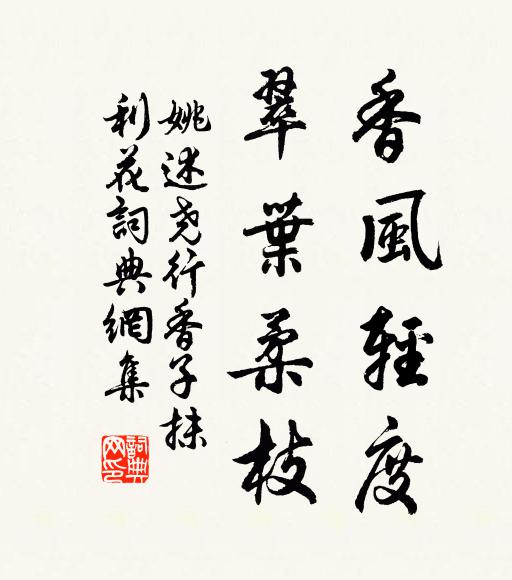 香風輕度
翠葉柔枝
姚述尧行香子抹
利花詞典網集
詞典网印